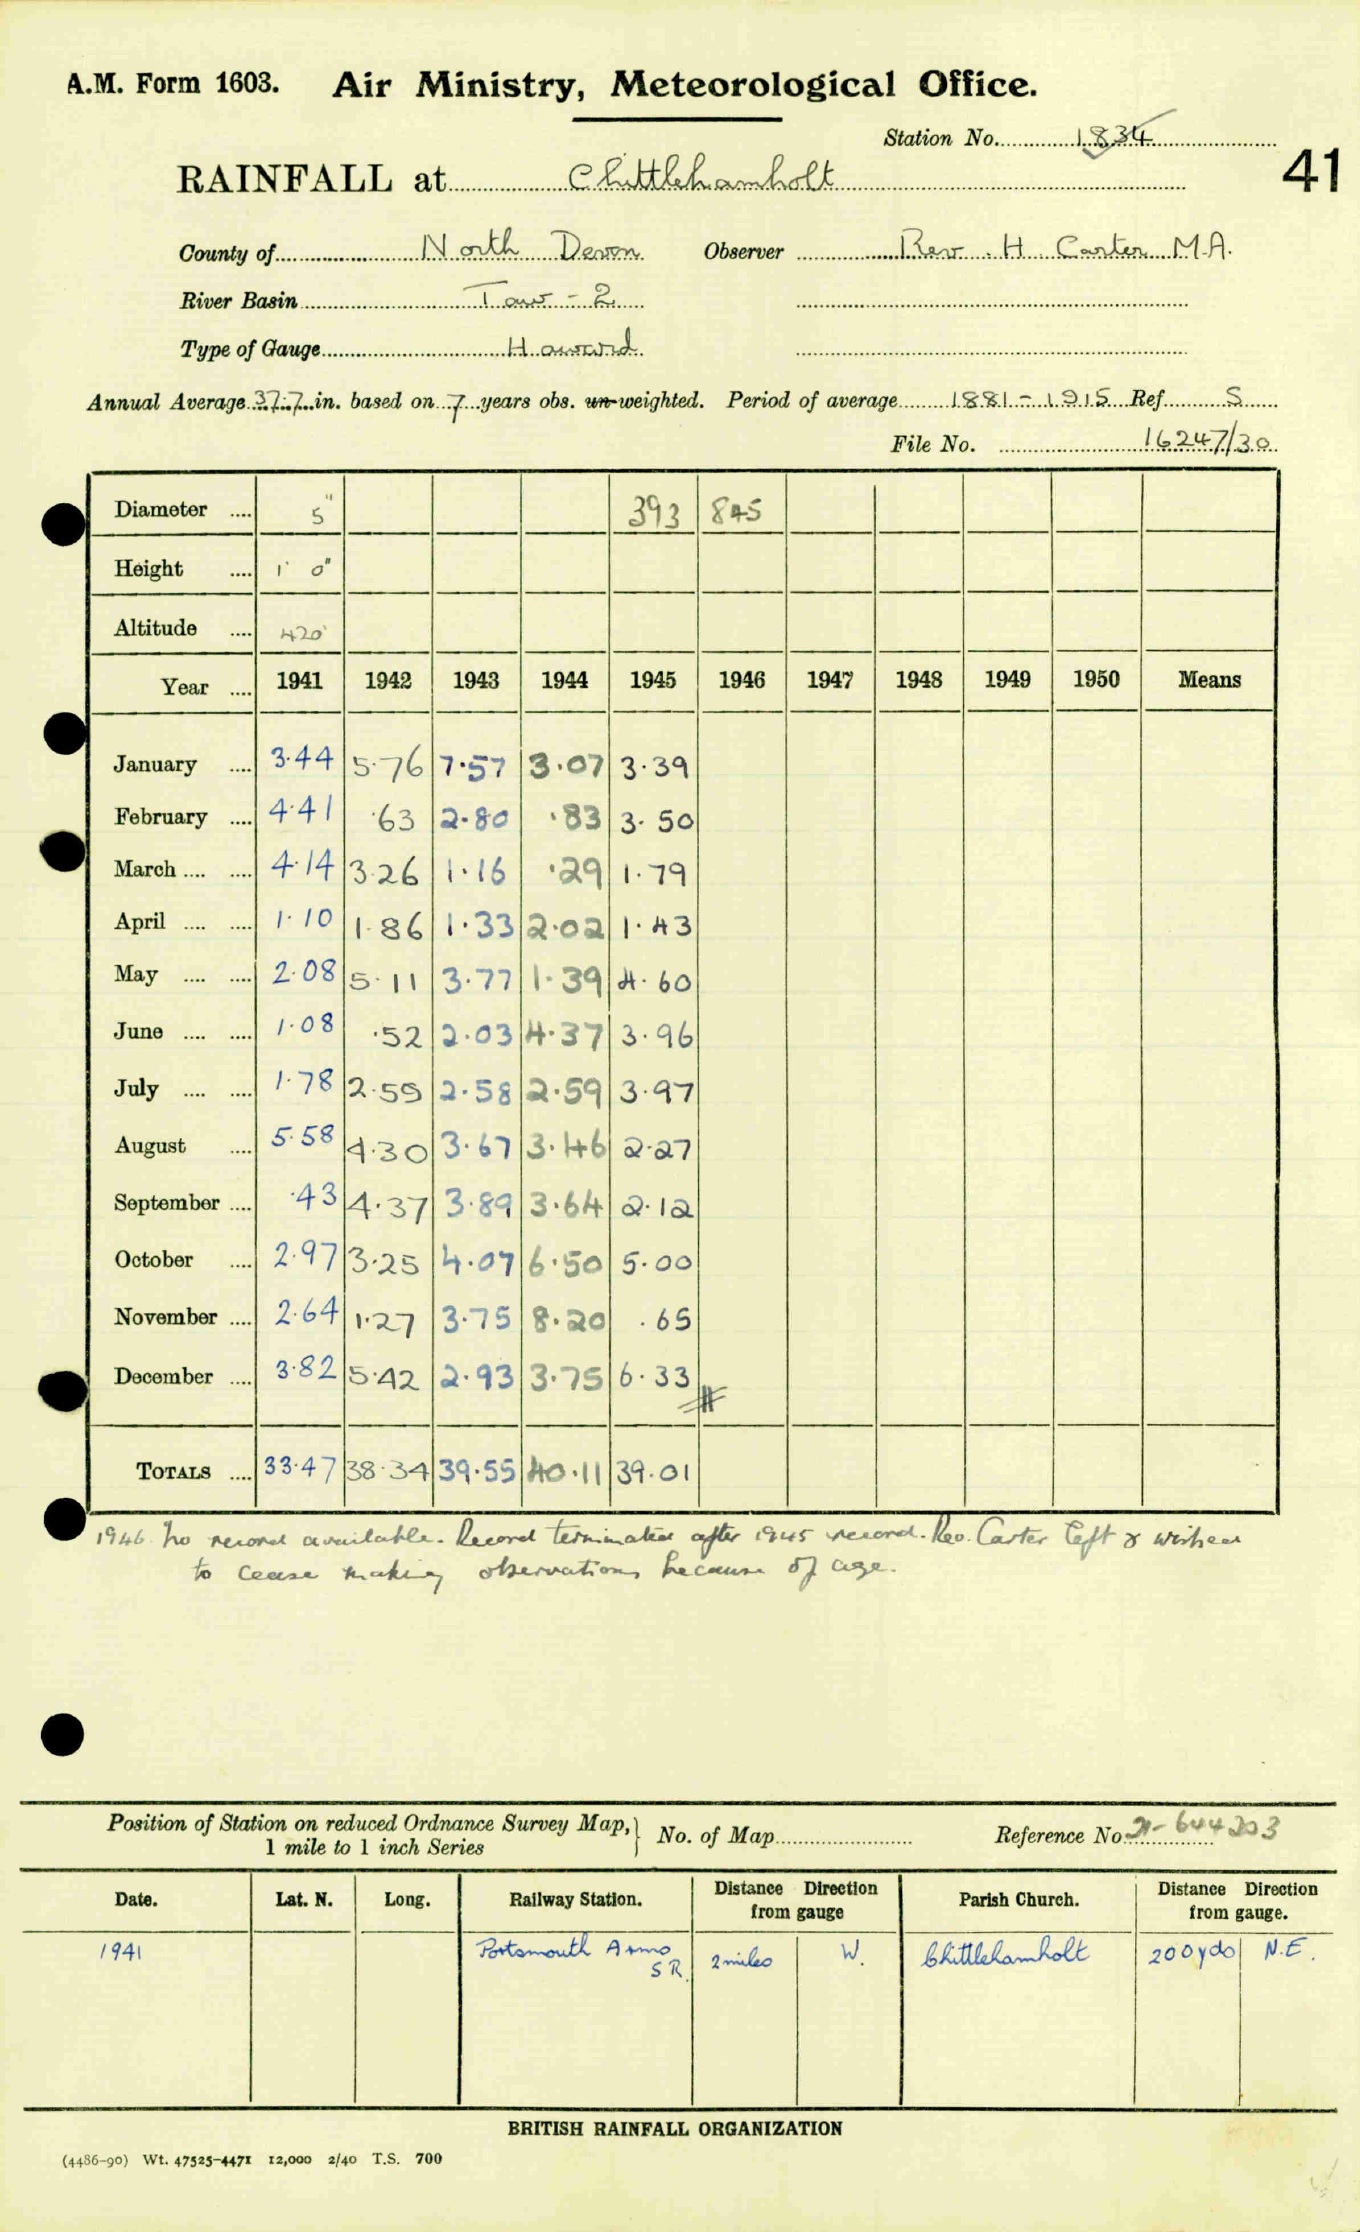 A.M. Form 1603. Air Ministry, Meteorological Office.
Station No. 1834
41
RAINFALL at Chittlehamholt
County of North Devon Observer Rev. H Carter M.A.
River Basin Taw - 2
Type of Gauge Howard
Annual Average 37.7 in. based on 7 years obs. un-weighted. Period of average 1881-1915 Ref. S
File No. 16247/30
Diameter .... 5" 393 845
Height .... 1' 0"
Altitude .... 420'
Year .... 1941 1942 1943 1944 1945 1946 1947 1948 1949 1950 Means
January .... 3.44 5.76 7.57 3.07 3.39
February .... 4.41 .63 2.80 .83 3.50
March .... .... 4.14 3.26 1.16 .29 1.79
April .... .... 1.10 1.86 1.33 2.02 1.43
May .... .... 2.08 5.11 3.77 1.39 4.60
June .... .... 1.08 .52 2.03 4.37 3.96
July .... .... 1.78 2.59 2.58 2.59 3.97
August .... 5.58 4.30 3.67 3.46 2.27
September .... .43 4.37 3.89 3.64 2.12
October .... 2.97 3.25 4.07 6.50 5.00
November .... 2.64 1.27 3.75 8.20 .65
December .... 3.82 5.42 2.93 3.75 6.33
TOTALS .... 33.47 38.34 39.55 40.11 39.01
1946 No record available. Record terminated after 1945 record. Rev. Carter left & wished
to cease making observations because of age.
Position of Station on reduced Ordnance Survey Map,
1 mile to 1 inch Series
No. of Map Reference No. 21-644203
Date. Lat. N. Long. Railway Station. Distance Direction from gauge Parish Church. Distance Direction from gauge.
1941 Portsmouth Arms S R. 2 miles W. Chittlehamholt 200 yds N.E.
BRITISH RAINFALL ORGANIZATION
(4486-90) Wt. 47525-4471 12,000 2/40 T.S. 700